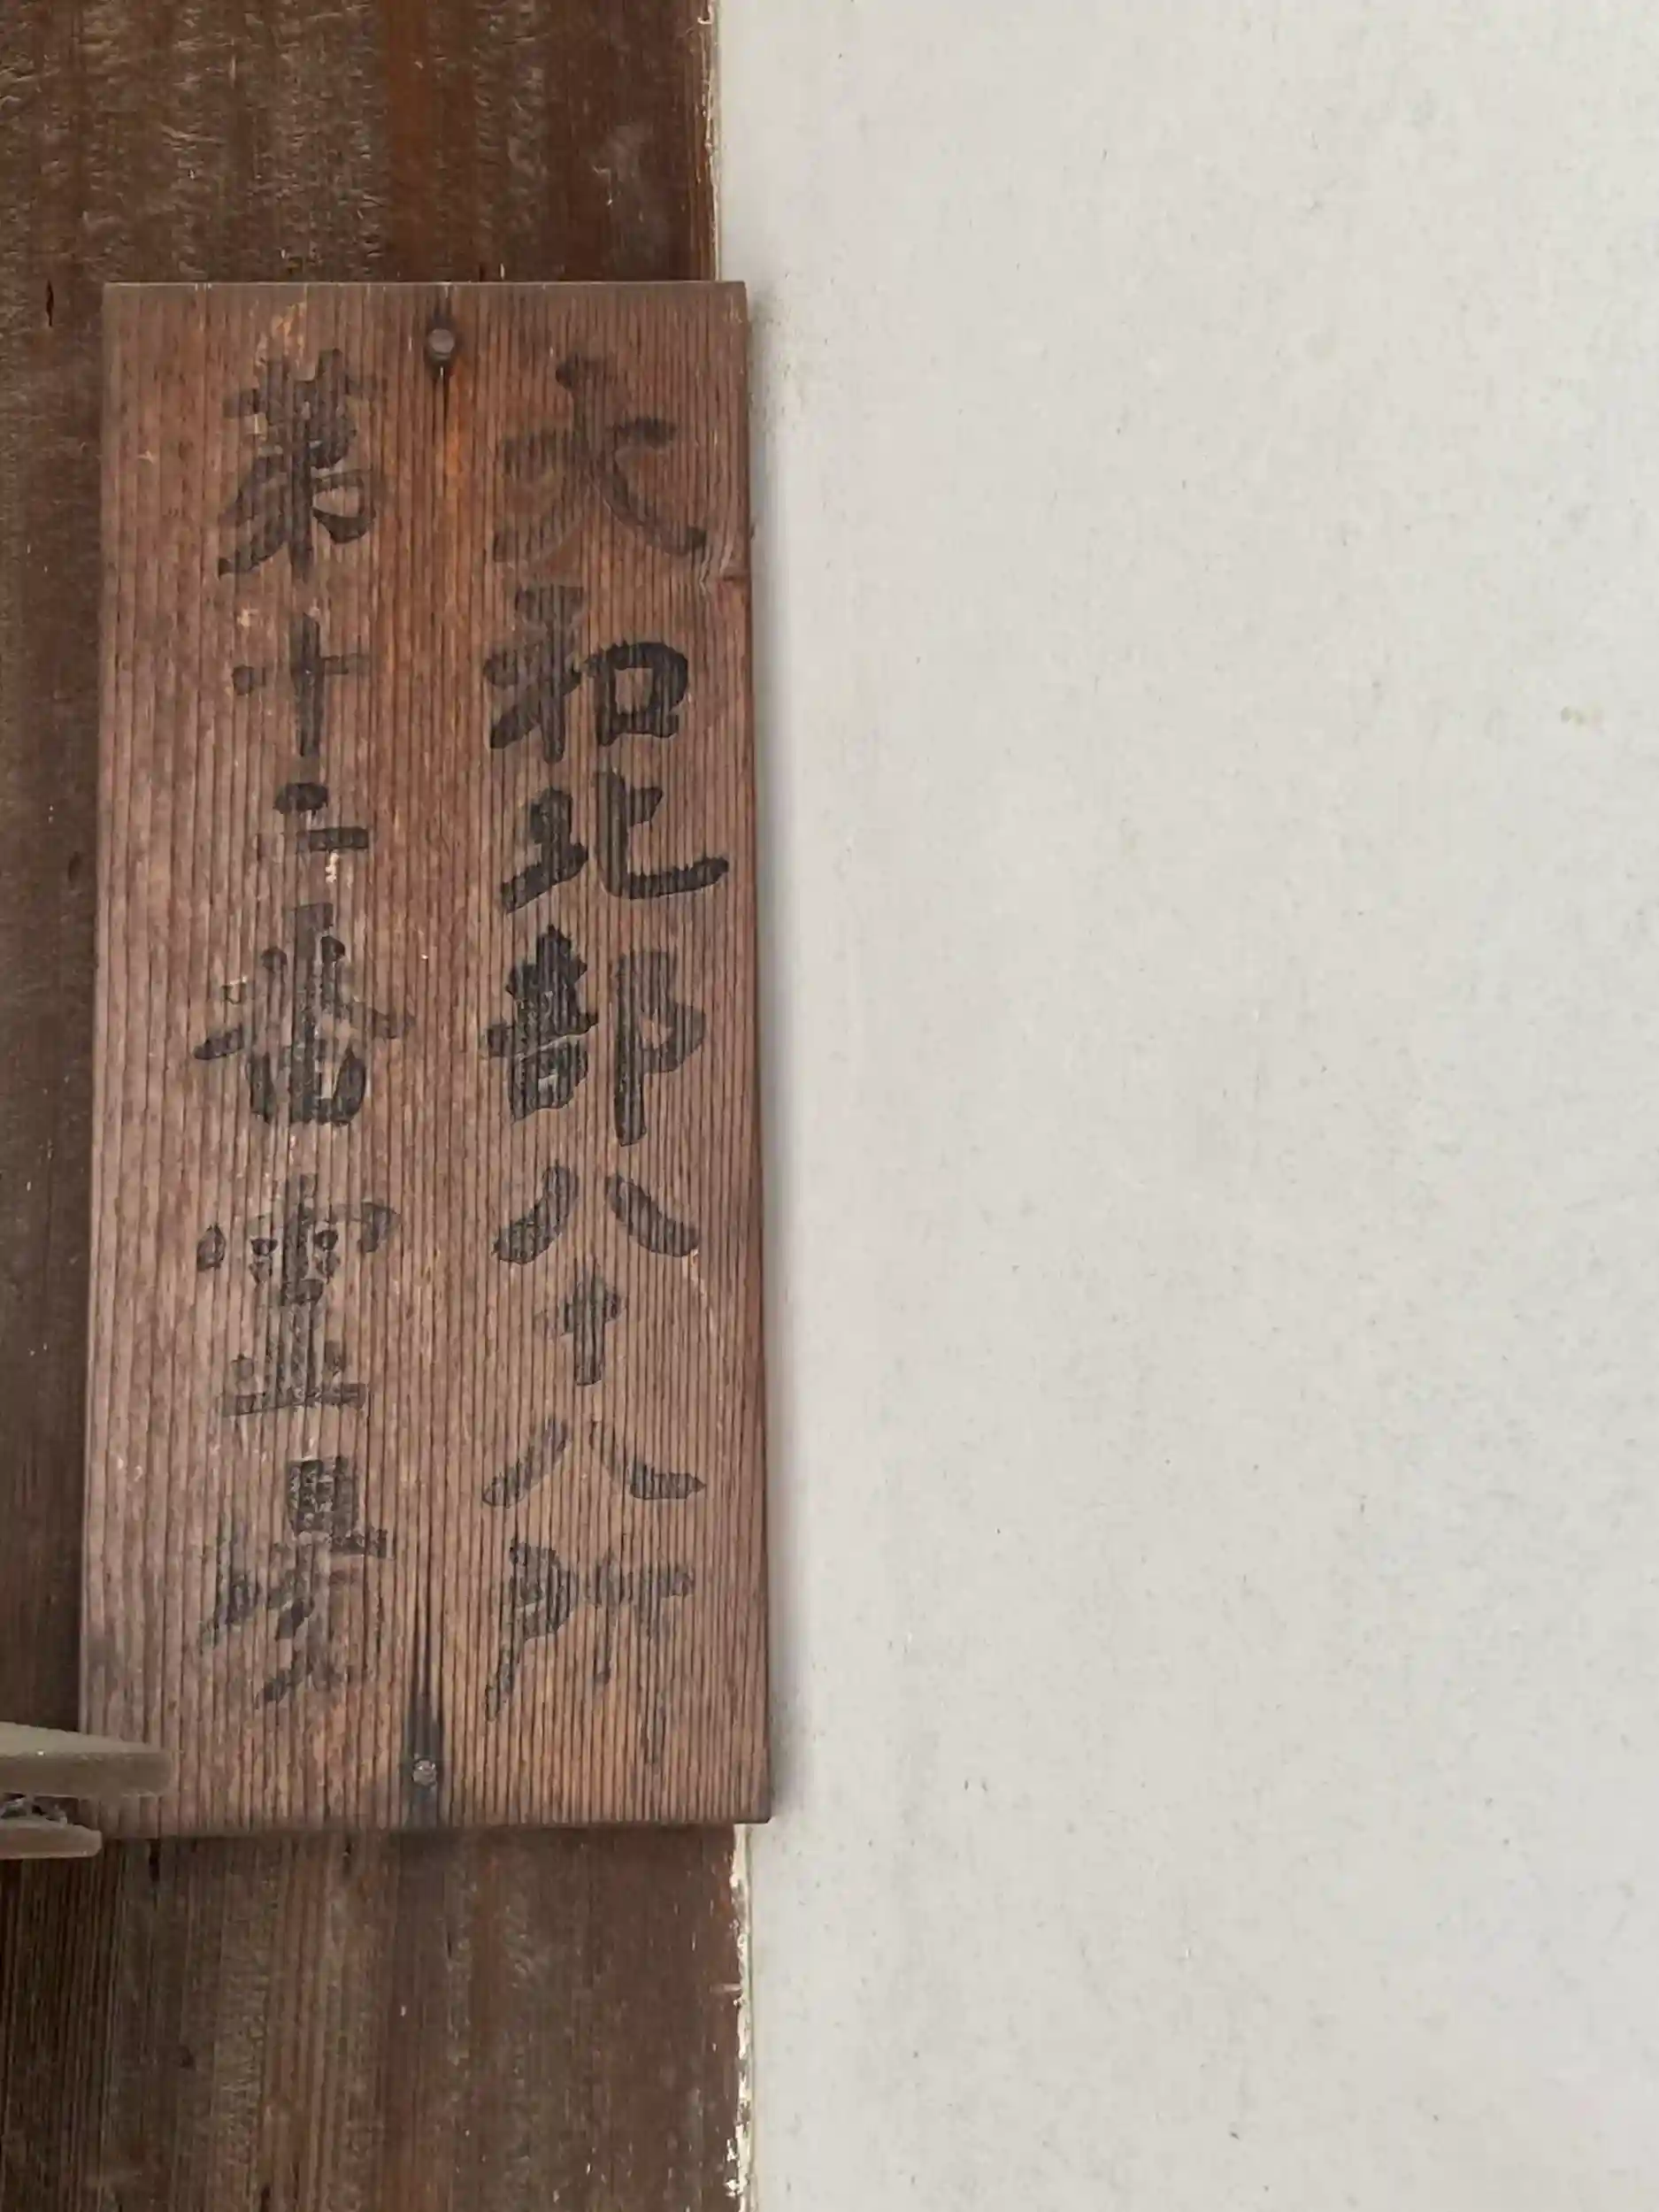 大和北部八十八所
第十二番霊場